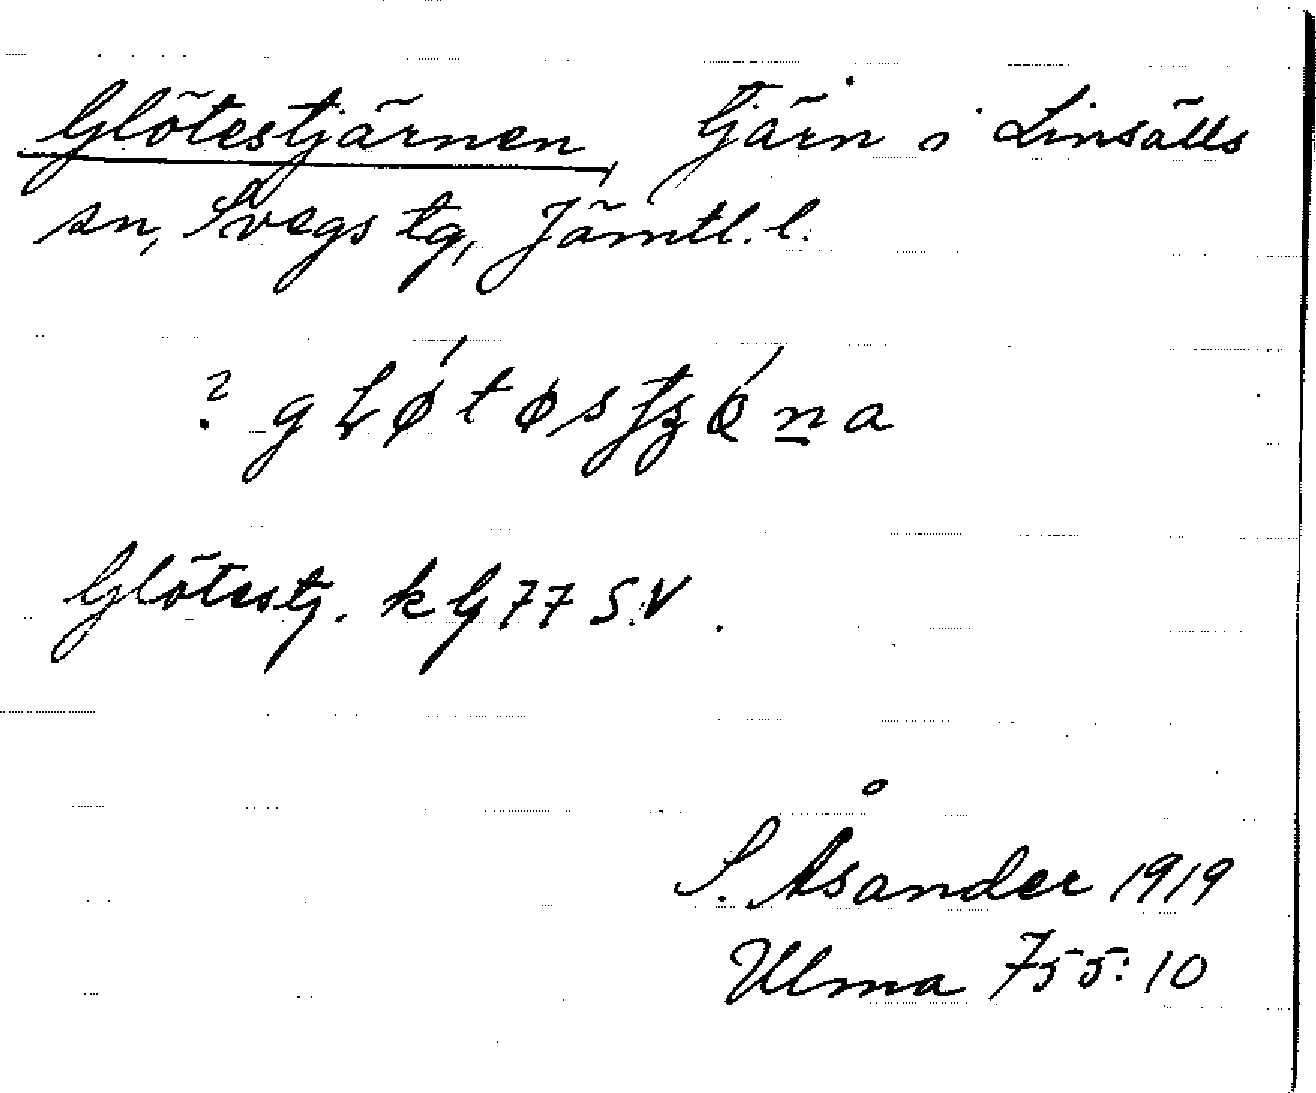 Glötestjärnen, tjärn i Linsälls
sn, Svegs tg, Jämtl. l.
? głǿtøstʒǿna
Glötestj. k G 77 S.V.
S. Åsander 1919
Ulma 755:10